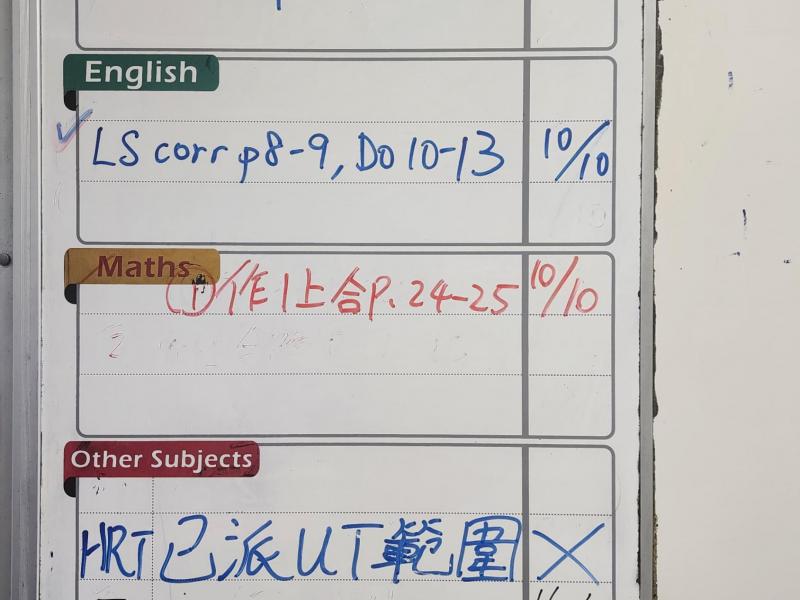 English
LS corr p8-9, Do 10-13 10/10
Maths
① 作1上合P. 24-25 10/10
Other Subjects
HRT 已派 UT 範圍 X